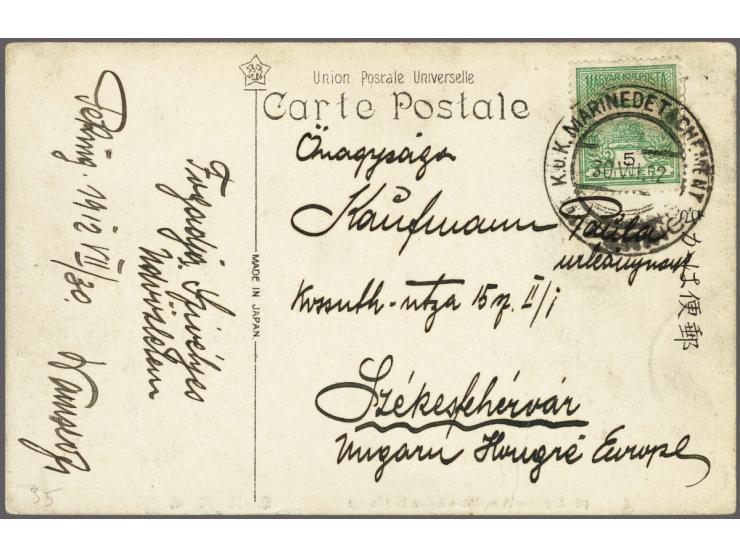 Union Postale Universelle
Carte Postale
MAGYAR KIR. POSTA
K.u.K. MARINEDETACHEMENT
5
30/VII/12
きかは便郵
MADE IN JAPAN.
Peking. 1912 VII/30.
Fogadja szívélyes
üdvözletem
Önagysága
Kaufmann
urleánynak
Kossuth-utza 15 sz. II/i
Székesfehérvár
Ungarn Hongrie Europe
35